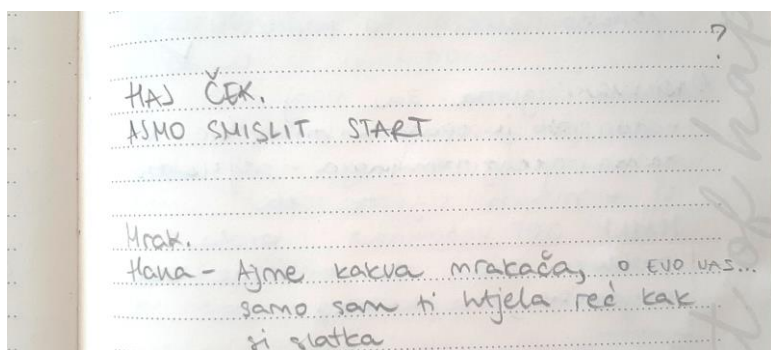 ?
HAJ ČEK.
AJMO SMISLIT START
Mrak.
Hana - Ajme kakva mrakača, O EVO VAS...
samo sam ti htjela reć kak
si slatka